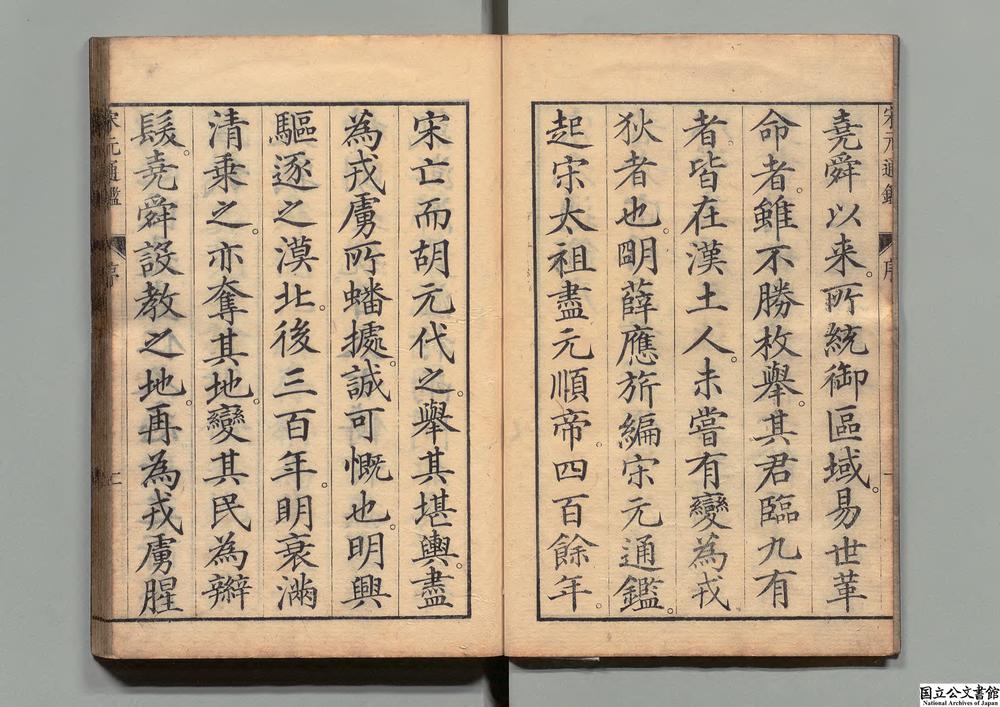 堯舜以来。所統御區域。易世革
命者。雖不勝枚舉。其君臨九有
者。皆在漢土人。未嘗有變為戎
狄者也。明薛應旂編宋元通鑑。
起宋太祖盡元順帝。四百餘年。
宋亡而胡元代之。舉其堪輿。盡
為戎虜所蟠據。誠可慨也。明興
驅逐之漠北。後三百年。明衰滿
清乗之。亦奪其地。變其民為辮
髮。堯舜設教之地。再為戎虜腥
宋元通鑑
序
一
宋元通鑑
序
七
国立公文書館
National Archives of Japan